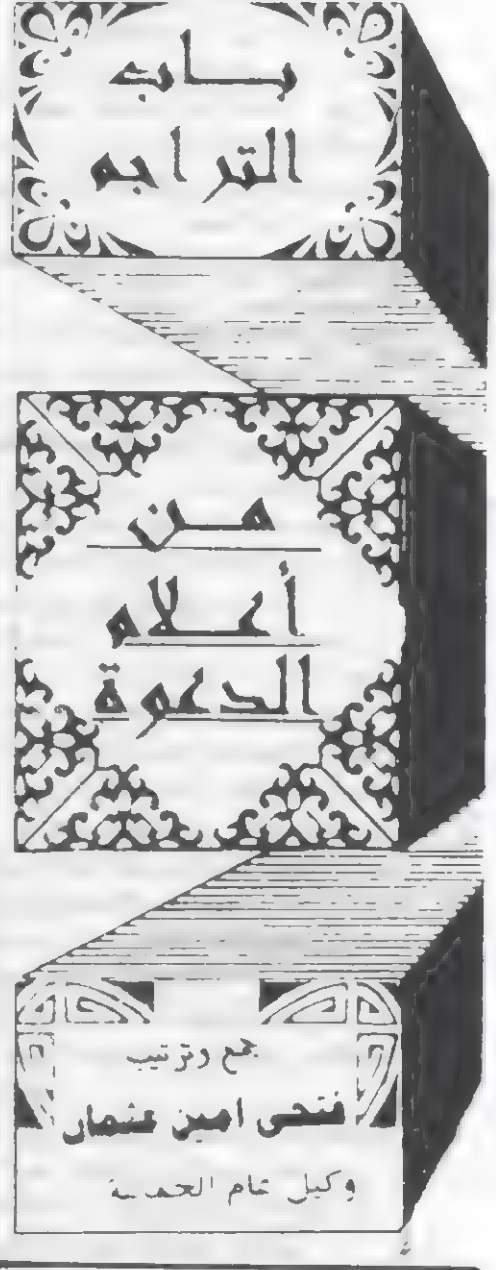 باب
التراجم
من
أعلام
الدعوة
جمع وترتيب
فتحى امين عثمان
وكيل عام الجماعة